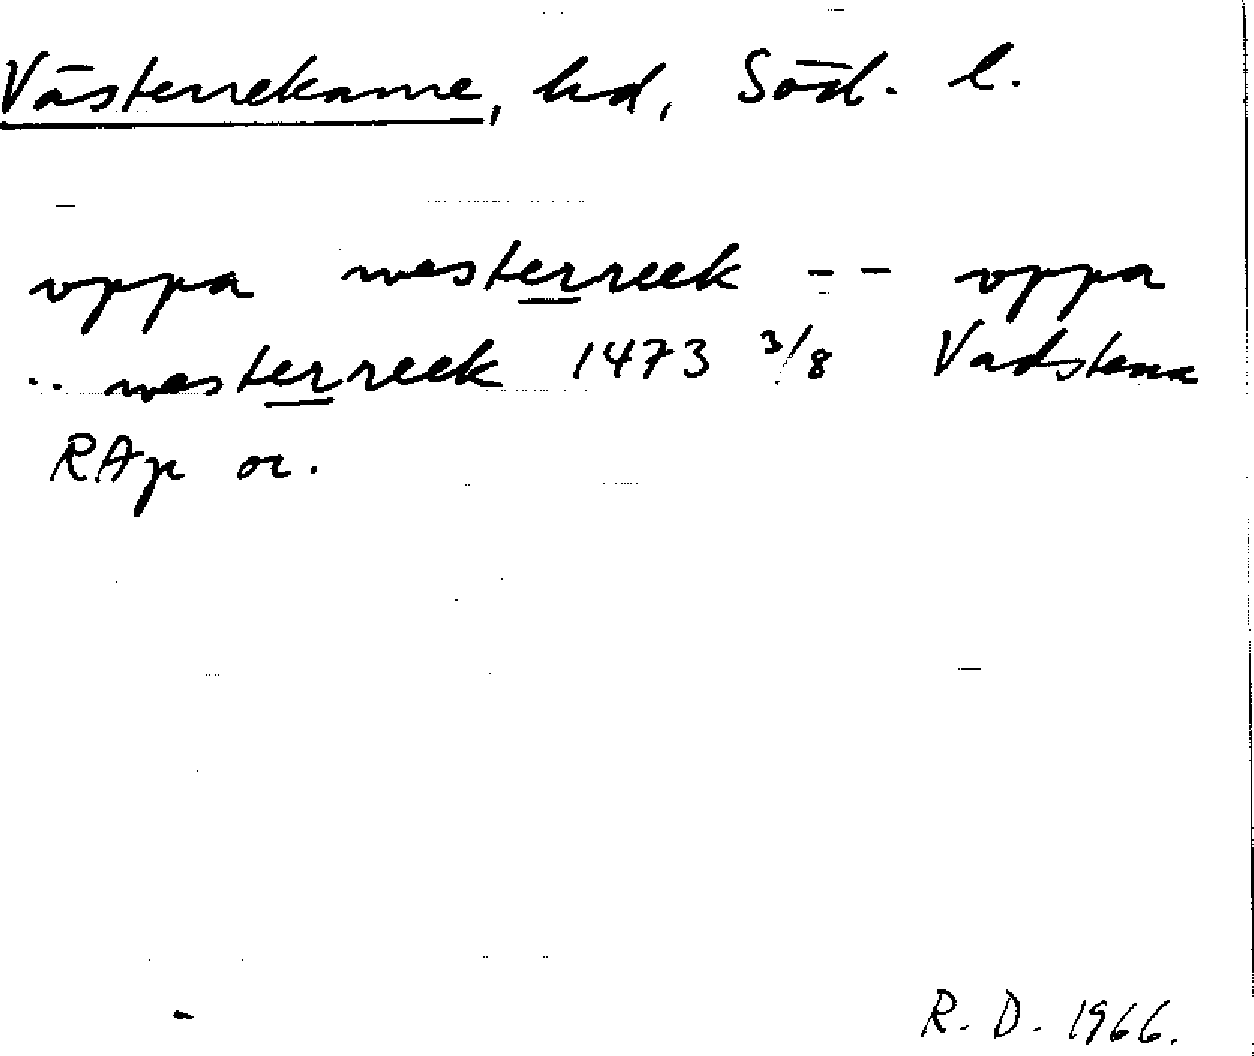 Västerrekarne, hd, Söd. l.
oppa westerreek - - oppa
.. westerreek 1473 3/8 Vadstena
RAp or.
R. D. 1966.